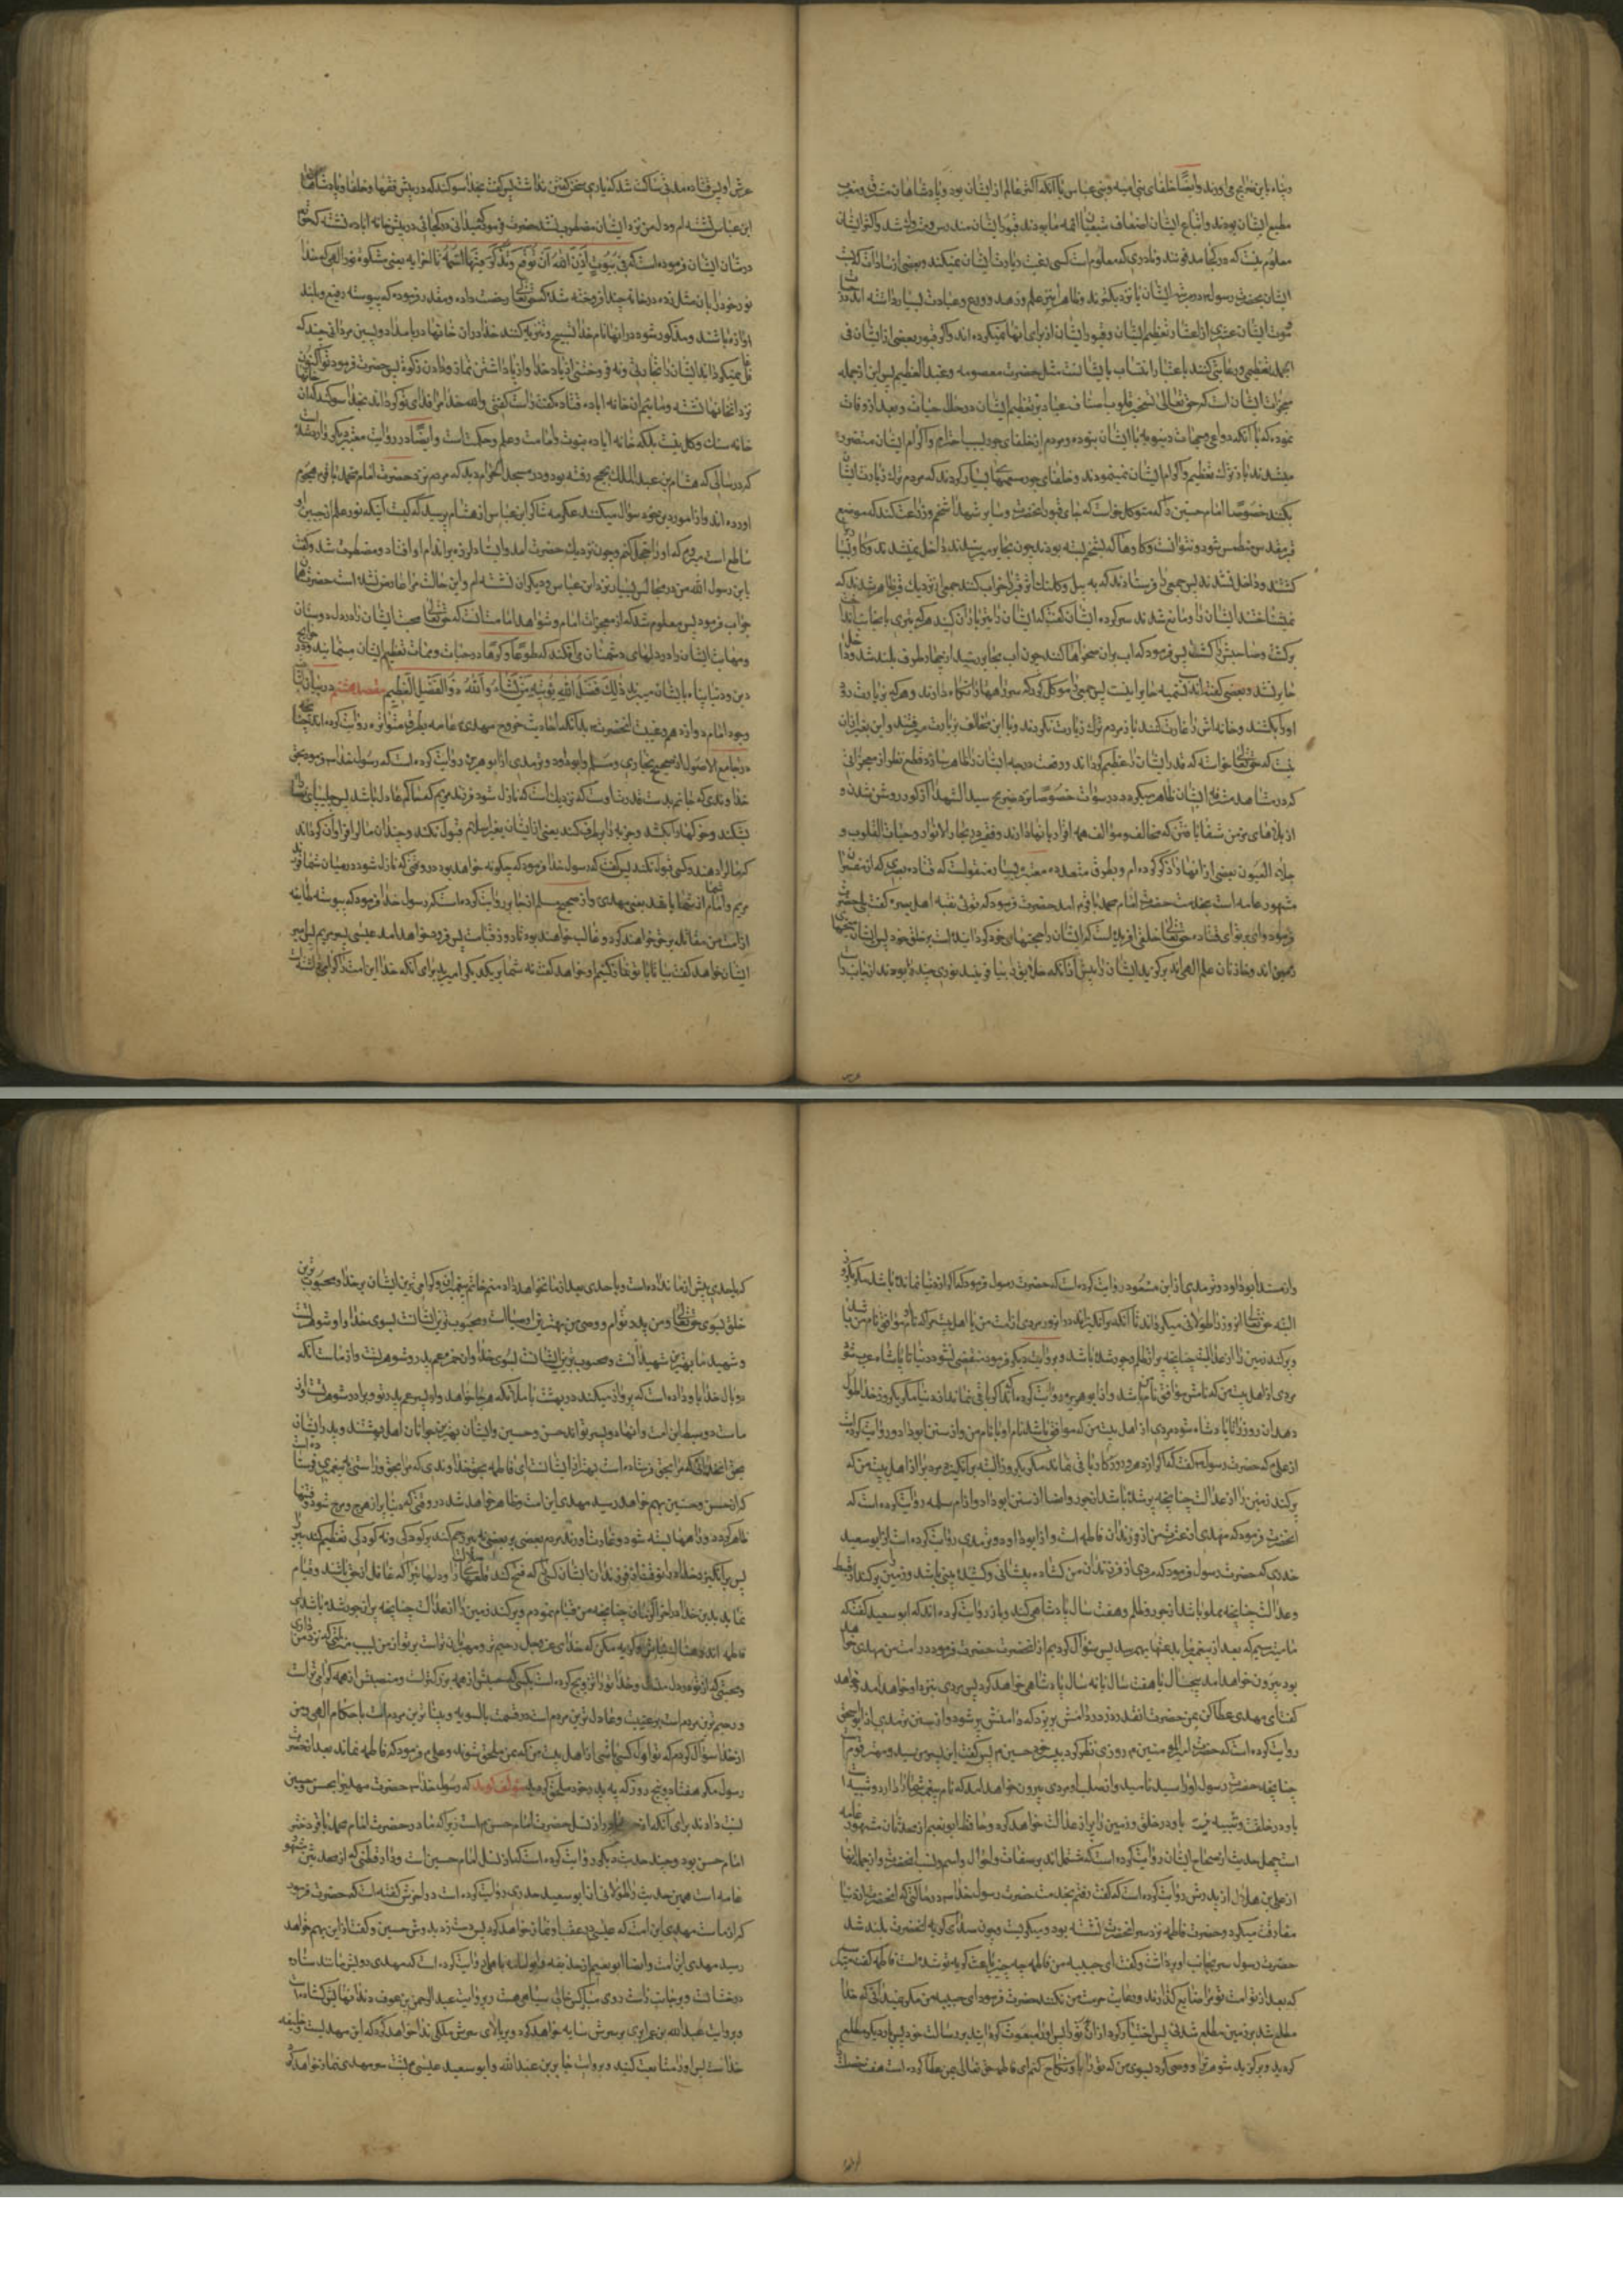 وپناه باین نمی‌اورند وایضا خلفای بنی امیه وبنی عباس با آنکه اکثر عالم از ایشان بود وپادشاهان مشرق ومغرب
مطیع ایشان بودند واتباع ایشان اضعاف شیعیان ائمه ما بودند قبور ایشان مندرس شد واکثر ایشان
معلوم نیست که در کجا مدفونند ونادری که معلوم است کسی رغبت زیارت ایشان نمیکند وبعضی از سادات که نسب
ایشان بحضرت رسول در مرتبه ایشان یا نزدیکترند وظاهرا علم وزهد وورع وعبادت بسیار داشته اند در حیات
وموت ایشان عشری از اعشار تعظیم ایشان وقبور ایشان از برای انها نمیکرده اند واگر قبور بعضی از ایشان فی
الجمله تعظیمی ورعایتی کنند باعتبار انتساب بایشانست مثل حضرت معصومه وعبد العظیم پس این از جمله
معجزات ایشان است که حق تعالی تسخیر قلوب اصناف عباد بر تعظیم ایشان در حال حیات وبعد از وفات
نموده که با آنکه دواعی وجهات دنیویه با ایشان نبوده ومردم از خلفای جور بسبب احترام واکرام ایشان متضرر
میشدند باز ترک تعظیم واکرام ایشان نمینمودند وخلفای جور سعیها بسیار کردند که مردم ترک زیارت ایشان
بکنند خصوصا امام حسین را که متوکل خواست که بنای قبور انحضرت وسایر شهدا را شخم وزراعت کنند که موضع
قبر مقدس منطمس شود ونتوانست وگاوها که بشخم بسته بودند چون بحایر میرسیدند داخل نمیشدند
کشتند وداخل نشدند پس جمعی را فرستادند که به بیل وکلنگ اثر قبر را خراب کنند جمعی از نزدیک قبر ظاهر شدند که
نمیشناختند ایشان را ومانع شدند سرکرده ایشان گفت که ایشان را تیرباران کنید هرکه تیری بجانب ایشان انداخت
برگشت وصاحبش را کشت پس فرمود که اب بران صحرا رها کنند چون اب بحایر رسید از چهار طرف بلند شد وداخل
حایر نشد وبعضی گفته اند سبب تسمیه حایر اینست پس جمعی را موکل کرد که سر راهها را نگاه دارند وهرکه بزیارت رود
او را بکشند وخانه اش را غارت کنند باز مردم ترک زیارت نکردند وبا این مخالف بزیارت میرفتند واین بغیر ازان
نیست که حق تعالی خواسته که قدر ایشان را عظیم گرداند ورفعت درجه ایشان را ظاهر سازد قطع نظر از معجزاتی
که در مشاهد مشرفه ایشان ظاهر میگردد در سنوات خصوصا نزد ضریح سید الشهدا از کور روشن شدن و
از بلاهای مزمن شفا یافتن که مخالف وموالف همه اقرار بانها دارند وفقیر در بحار الانوار وحیات القلوب و
جلاء العیون بعضی از انها را ذکر کرده ام وبطرق متعدده معتبر بسیار منقولست که قتاده بصری که از مفسران
مشهور عامه است بخدمت حضرت امام محمد باقر امد حضرت فرمود که توئی فقیه اهل بصره گفت بلی حضرت
فرمود وای بر تو ای قتاده حق تعالی خلقی افریده است که ایشان را حجتهای خود گردانیده است بر خلق خود پس ایشان میخهای
زمین اند وخازنان علم الهی اند برگزید ایشان را پیش از آنکه خلایق را بیافریند نوری چند بودند از جانب راست
عرش او پس قتاده مدتی ساکت شد که یارای سخن گفتن نداشت پس گفت بخدا سوگند که در پیش فقها وخلفا وپادشاهان
ابن عباس نشسته ام ودل من نزد ایشان مضطرب نشد حضرت فرمود که میدانی در کجائی در پیش خانه اباده نشسته که حق تعالی
در شان ایشان فرموده است که فی بیوت اذن الله ان ترفع ویذکر فیها اسمه تا اخر ایه یعنی مشکوة نور الهی که خدا
نور خود را بان مثل زده در خانه چند افروخته شد که حق تعالی رخصت داده ومقدر فرموده که پیوسته رفیع وبلند
اوازه باشند ومذکور شود در انها نام خدا تسبیح وتنزیه کنند خدا را دران خانها در بامداد وپسین مردانی چند که
غافل نمیگرداند ایشان را تجارتی ونه فروختنی از یاد خدا واز پا داشتن نماز ودادن زکوة پس حضرت فرمود تو اکنون
نزد انخانها نشسته ومائیم ان خانه اباده قتاده گفت راست گفتی والله خدا مرا فدای تو گرداند بخدا سوگند که ان خانها
خانه سنگ وگل نیست بلکه خانه اباده نبوت وامامت وعلم وحکمت است وایضا در روایت معتبر دیگر وارد شده
که در سالی که هشام بن عبد الملک بحج رفته بود ودر مسجد الحرام دید که مردم نزد حضرت امام محمد باقر هجوم
اورده اند واز امور دین خود سؤال میکنند عکرمه شاگرد ابن عباس از هشام پرسید که کیست آنکه نور علم از جبین او
ساطع است میروم که او را خجل کنم وچون نزدیک حضرت امد وایستاد لرزه بر اندام او افتاد ومضطرب شد وگفت
یابن رسول الله من در مجالس بسیار نزد ابن عباس ودیگران نشسته ام واین حالت مرا عارض نشده است حضرت همان
جواب فرمود پس معلوم شد که از معجزات امام وشواهد امامت انست که حق تعالی محبت ایشان را در دل دوستان
ومهابت ایشان را در دلهای دشمنان می افکند که طوعا وکرها در حیات وممات تعظیم ایشان مینمایند ودر حوایج
دین ودنیا پناه بایشان میبرند ذلک فضل الله یؤتیه من یشاء والله ذو الفضل العظیم مقصد هشتم در بیان اثبات
وجود امام دوازدهم وغیبت انحضرت بدانکه احادیث خروج مهدی عامه بطرق متواتره روایت کرده اند چنانچه
در جامع الاصول از صحیح بخاری ومسلم وابو داود وترمذی از ابو هریره روایت کرده است که رسول خدا فرمود بحق
خداوندی که جانم بدست قدرت اوست که نزدیک است که نازل شود فرزند مریم که حاکم عادل باشد پس چلیپای نصارا را
بشکند وخوکها را بکشد وجزیه را برطرف کند یعنی از ایشان بغیر اسلام قبول نکند وچندان مال را فراوان گرداند
که مال را دهند وکسی قبول نکند پس گفت که رسول خدا فرمود که چگونه خواهد بود در وقتی که نازل شود در میان شما فرزند
مریم وامام شما از شما باشد یعنی مهدی واز صحیح مسلم از جابر روایت کرده است که رسول خدا فرمود که پیوسته طایفه
از امت من مقاتله بر حق خواهند کرد وغالب خواهند بود تا روز قیامت پس فرود خواهد امد عیسی پسر مریم پس امیر
ایشان خواهد گفت بیا تا با تو نماز کنیم او خواهد گفت نه شما بر یکدیگر امیرید برای انکه خدا این امت را گرامی داشته
واز مسند ابو داود وترمذی از ابن مسعود روایت کرده است که حضرت رسول فرمود که اگر از دنیا نمانده باشد مگر یکروز
البته حق تعالی انروز را طولانی میگرداند تا آنکه برانگیزاند در انروز مردی از امت من یا اهل بیت مرا که نامش موافق نام من باشد
وپر کند زمین را از عدالت چنانچه پر از ظلم وجور شده باشد وبروایت دیگر فرمود منقضی نشود دنیا تا پادشاه عرب شود
مردی از اهل بیت من که نامش موافق نام من باشد واز ابو هریره روایت کرده اند که اگر باقی نماند از دنیا مگر یکروز خدا طول
دهد ان روز را تا پادشاه شود مردی از اهل بیت من که موافق باشد نام او با نام من واز سنن ابو داود روایت کرده است
از علی که حضرت رسول گفت که اگر از دهر ودوزگار باقی نماند مگر یکروز البته برانگیزد مردی را از اهل بیت من که
پر کند زمین را از عدالت چنانچه پر شده باشد از جور وایضا از سنن ابو داود از ام سلمه روایت کرده است که
انحضرت فرمود که مهدی از عترت من از فرزندان فاطمه است واز ابو داود وترمذی روایت کرده است از ابو سعید
خدری که حضرت رسول فرمود که مردی از فرزندان من گشاده پیشانی وکشیده بینی باشد وزمین را پر کند از قسط
وعدالت چنانچه مملو باشد از جور وظلم وهفت سال پادشاهی کند وباز روایت کرده اند که ابو سعید گفت که
ما میترسیم که بعد از پیغمبر بدعتها بهم رسد پس سؤال کردیم از انحضرت حضرت فرمود در امت من مهدی خواهد
بود بیرون خواهد امد پنج سال یا هفت سال یا نه سال پادشاهی خواهد کرد پس مردی بنزد او خواهد امد وخواهد
گفت ای مهدی عطا کن بمن حضرت انقدر زر در دامنش بریزد که دامنش پر شود واز سنن ترمذی از ابو اسحق
روایت کرده است که حضرت امیر المؤمنین روزی نظر کرد بپسر خود حسین پس گفت این پسر من سید ومهتر قوم است
چنانچه حضرت رسول او را سید نامید واز صلب او مردی بیرون خواهد امد که نام پیغمبر شما را دارد وشبیه است
باو در خلقت وشبیه نیست باو در خلق وزمین را پر از عدالت خواهد کرد وحافظ ابو نعیم از محدثان مشهور عامه
است چهل حدیث از صحاح ایشان روایت کرده است که مشتمل اند بر صفات واحوال واسم ونسب انحضرت واز جمله انها
از علی بن هلال از پدرش روایت کرده است که گفت رفتم بخدمت حضرت رسول خدا در حالتی که انحضرت از دنیا
مفارقت میکرد وحضرت فاطمه نزد سر انحضرت نشسته بود ومیگریست وچون صدای گریه انحضرت بلند شد
حضرت رسول سر بجانب او برداشت وگفت ای حبیبه من فاطمه چه چیز باعث گریه تو شده است فاطمه گفت میترسم
که بعد از تو امت تو مرا ضایع گذارند ورعایت حرمت من نکنند حضرت فرمود ای حبیبه من مگر نمیدانی که خدا
مطلع شد بر زمین مطلع شدنی پس اختیار کرد ازان پدر تو را پس او را مبعوث گردانید برسالت خود پس بار دیگر مطلع
گردید وبرگزید شوهر ترا ووحی کرد بسوی من که تو را باو نکاح کنم ای فاطمه حق تعالی بما عطا کرده است هفت خصلت
که باحدی پیش از ما نداده است وباحدی بعد از ما نخواهد داد منم خاتم پیغمبران وگرامی ترین ایشان بر خدا ومحبوب ترین
خلق بسوی حق تعالی ومن پدر توام ووصی من بهترین اوصیاست ومحبوب ترین ایشانست بسوی خدا واو شوهر تست
وشهید ما بهترین شهیدانست ومحبوب ترین ایشانست بسوی خدا وان حمزه عم پدر وشوهر تست واز ماست آنکه
دو بال خدا باو داده است که پرواز میکند در بهشت با ملائکه هرجا خواهد واو پسر عم پدر تو وبرادر شوهر تست واز
ماست دو سبط این امت وانها دو پسر تواند حسن وحسین وایشان بهترین جوانان اهل بهشتند وپدر ایشان
بحق انخدائی که مرا بحق فرستاده است بهتر از ایشانست ای فاطمه بحق خداوندی که مرا بحق وراستی به پیغمبری فرستاده است
که از حسن وحسین بهم خواهد رسید مهدی این امت وظاهر خواهد شد در وقتی که دنیا پر از هرج ومرج شود وفتنها
ظاهر گردد وراهها بسته شود وغارت اورند مردم بعضی بر بعضی نه پیری رحم کند بر کودکی ونه کودکی تعظیم کند پیری را
پس برانگیزد خدا در انوقت از فرزندان ایشان کسی را که فتح کند قلعهای ضلالت را ودلهائی را که غافل از حق باشند وقیام
نماید بدین خدا در اخر الزمان چنانچه من قیام نمودم وپر کند زمین را از عدالت چنانچه پر از جور شده باشد ای
فاطمه اندوهناک مباش وگریه مکن که خدای عز وجل رحیم تر ومهربان تر است بر تو از من بسبب منزلتی که نزد من داری
ومحبتی که از تو در دل منست وخدا تو را تزویج کرده است بکسی که حسبش از همه بزرگتر است ومنصبش از همه گرامی تر است
ورحیم ترین مردم است بر رعیت وعادل ترین مردم است در قسمت بالسویه وبیناترین مردم است باحکام الهی ومن
از خدا سؤال کردم که تو اول کسی باشی از اهل بیت من که بمن ملحق شوند وعلی فرمود که فاطمه نماند بعد از حضرت
رسول مگر هفتاد وپنج روز که به پدر خود ملحق گردید مؤلف گوید که رسول خدا حضرت مهدی را بحسن وحسین
نسبت دادند برای آنکه از جهت مادر از نسل حضرت امام حسن است زیرا که مادر حضرت امام محمد باقر دختر
امام حسن بود وچند حدیث دیگر روایت کرده است که از نسل امام حسین است ودار قطنی که از محدثین مشهور
عامه است همین حدیث طولانی را از ابو سعید خدری روایت کرده است ودر اخرش گفته است که حضرت فرمود
که از ماست مهدی این امت که عیسی در عقب او نماز خواهد کرد پس دست زد بر دوش حسین وگفت از این بهم خواهد
رسید مهدی این امت وایضا ابو نعیم از حذیفه وابو امامه باهلی روایت کرده است که مهدی رویش مانند ستاره
درخشانست وبر جانب راست روی مبارکش خالی سیاهی هست وبروایت عبد الرحمن بن عوف دندانهایش گشاده است
وبروایت عبد الله بن عمر ابری بر سرش سایه خواهد کرد وبر بالای سرش ملکی ندا خواهد کرد که این مهدیست وخلیفه
خداست پس او را متابعت کنید وبروایت جابر بن عبد الله وابو سعید عیسی در پشت سر مهدی نماز خواهد کرد